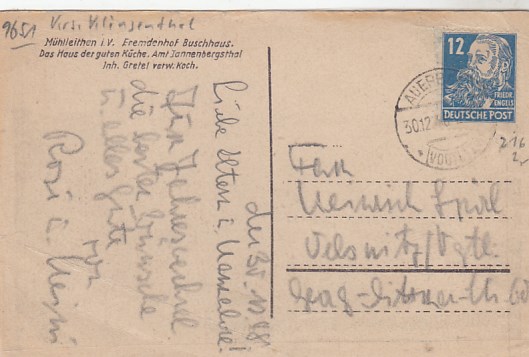 9651 Krs. Klingenthal
Mühlleithen i.V. Fremdenhof Buschhaus.
Das Haus der guten Küche. Amt Tannenbergsthal
Inh. Gretel verw. Koch.
12
FRIEDR.
ENGELS
DEUTSCHE POST
AUERB
30.12
(VOGTL
216
den 30. 12. 48
Liebe Eltern u.
Zum Jahreswechsel
die besten Wünsche
u. alles Gute
von
Rosi u.
Fam
Heinrich
Oelsnitz/Vgtl.